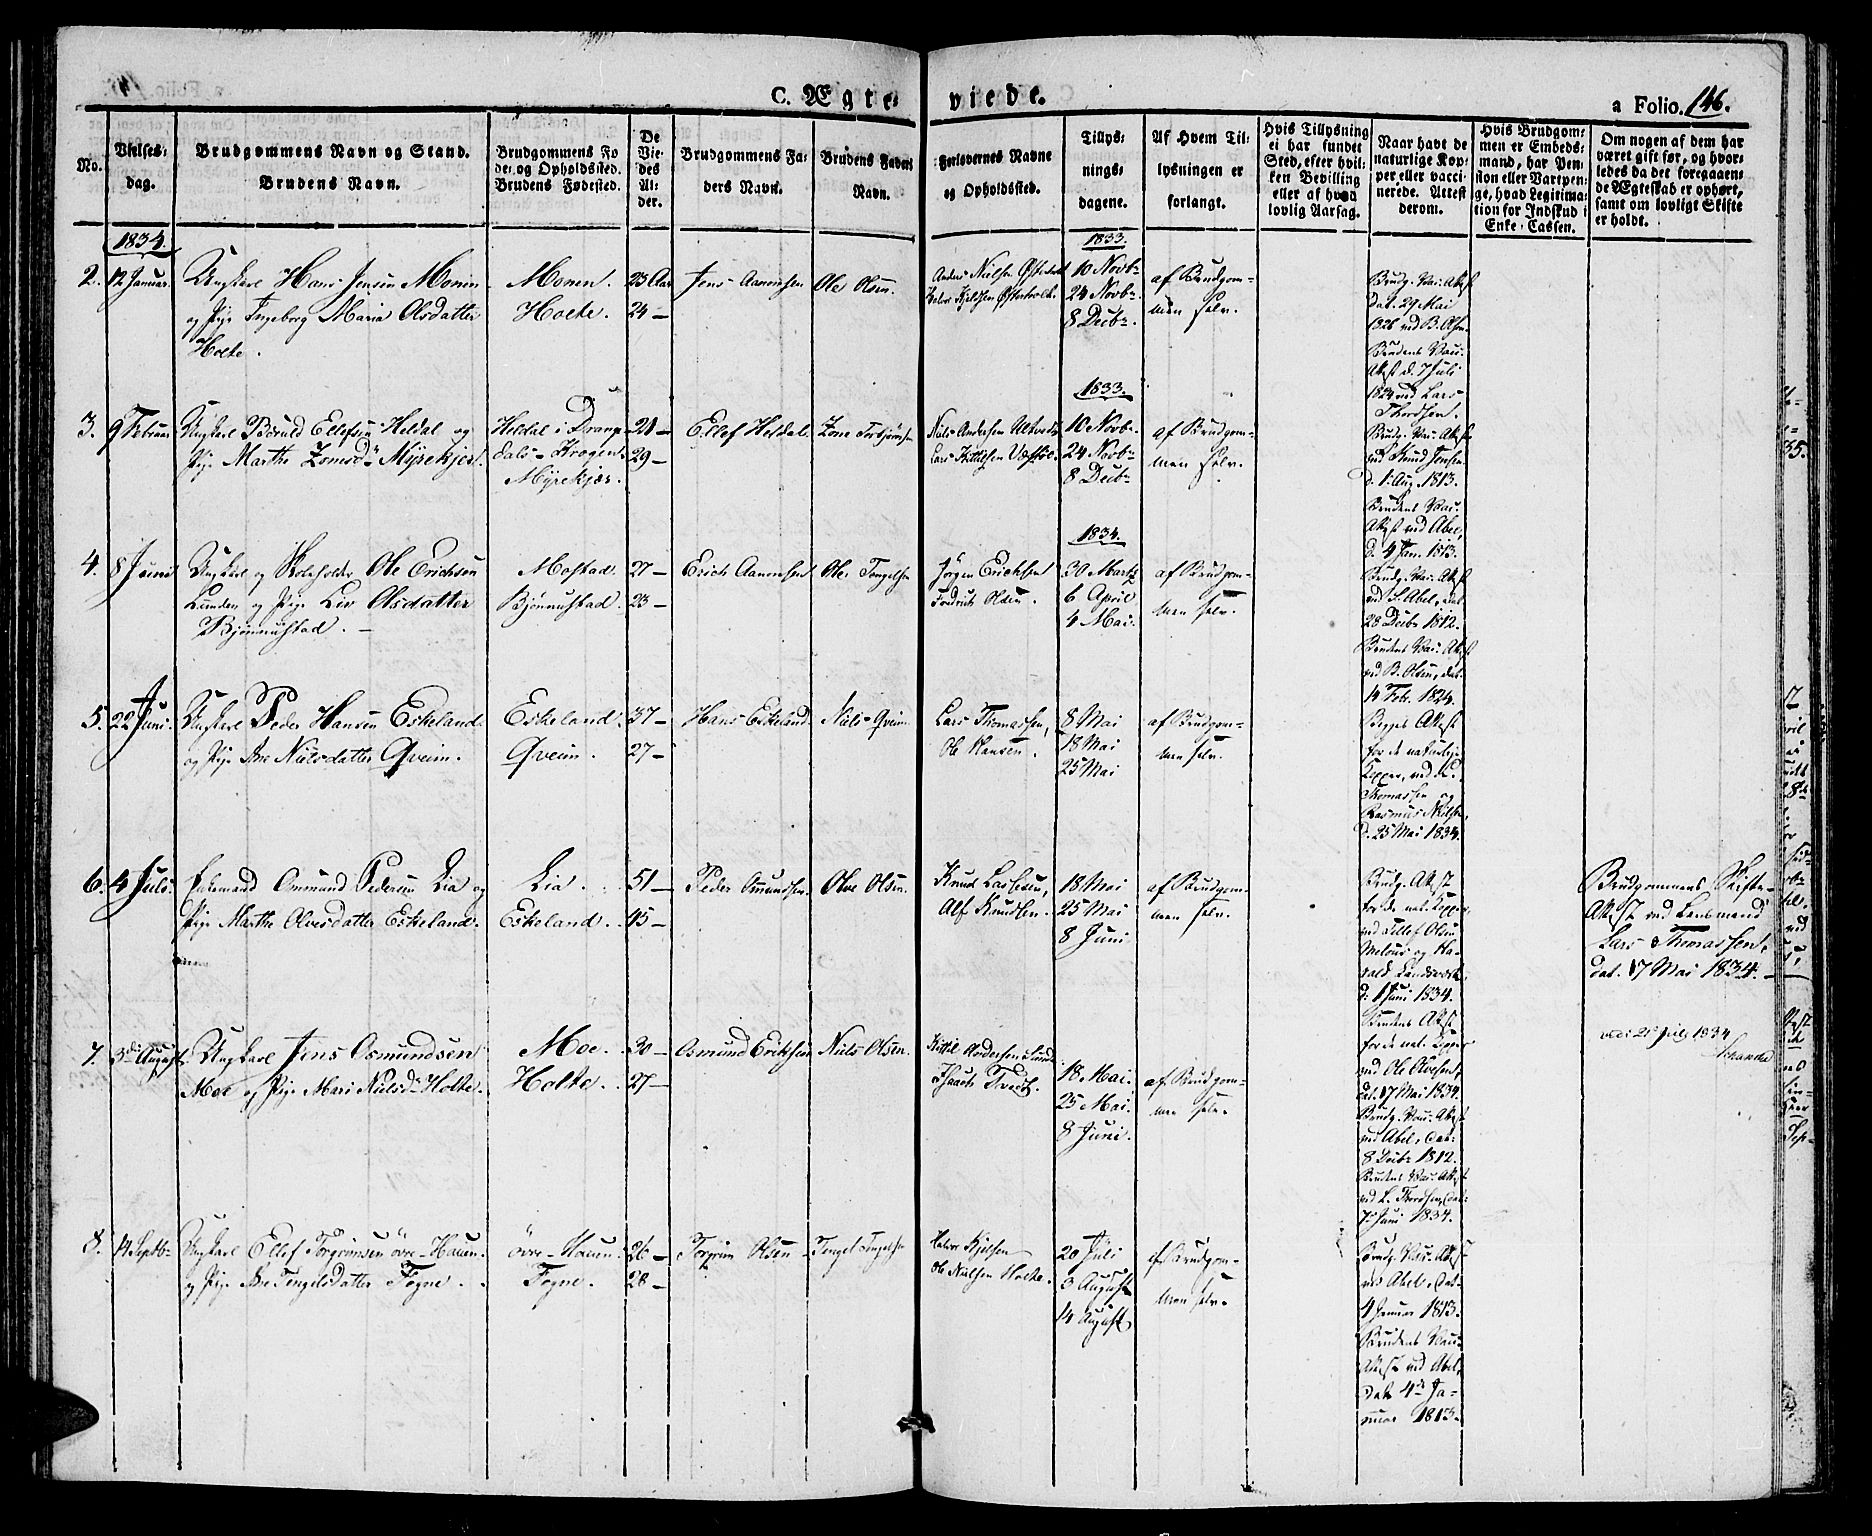 C. Ægte-
viede.
a Folio. 146.
No.
Vielses-
dag.
Brudgommens Navn og Stand.
Brudens Navn.
Brudgommens Fø
de- og Opholdssted.
Brudens Fødested.
De
Vie-
des
Al-
der.
Brudgommens Fa-
ders Navn.
Brudens Faders
Navn.
Forlovernes Navne
og Opholdssted.
Tillys-
nings-
dagene.
Af Hvem Til-
lysningen er
forlangt.
Hvis Tillysning
ei har fundet
Sted, efter hvil-
ken Bevilling
eller af hvad
lovlig Aarsag.
Naar havt de
naturlige Kop-
per eller vacci-
nerede. Attest
derom.
Hvis Brudgom-
men er Embeds-
mand, har Pen-
sion eller Vartpen-
ge, hvad Legitima-
tion for Indskud i
Enke-Cassen.
Om nogen af dem har
været gift før, og hvor-
ledes da det foregaaen-
de Ægteskab er ophørt,
samt om lovligt Skifte
er holdt.
1834.
2. 12 Januar.
Ungkarl Hans Jensen Monen
og Pige Ingeborg Maria Olsdatter
Holte.
Monen.
Holte.
23 Aar
24 —
Jens Aanensen
Ole Olsen.
Anders Nielsen
Halvor Kjelsen Østerholt.
1833.
10 Novbr
24 Novbr
8 Decbr.
af Brudgom-
men selv.
Brudg. Vac. Attest
dat. 29 Mai
1826 ved B. Olsen.
Brudens Vac.
Attest d. 7 Juli
1824 ved Lars
Thordsen.
3. 9 Februar
Ungkarl Børuld Ellefsen Heldal og
Pige Marthe Zomsdr Myrekjer.
Heldal i Drange-
dals-Krogen.
Myrekjær.
21 —
29 —
Ellef Heldal.
Zome Torbjørnsen
Niels Andersen
Lars Kittilsen
1833.
10 Novbr.
24 Novbr
8 Decbr
af Brudgom-
men selv.
Brudg. Vac. Attest
ved Knud Jensen
d. 1 Aug. 1813.
Brudens Vac.
Attest ved Abel,
d. 4 Jan. 1813.
4. 8 Juni
Ungkarl og Skoleholder Ole Erichsen
Lunden og Pige Liv Olsdatter
Bjønnustad. —
Mostad
Bjønnustad.
27 —
23 —
Erich Aanensen
Ole Tengelsen
Jørgen Erichsen
Fredrik Olsen.
1834.
30 Marts
6 April
4 Mai.
af Brudgom-
men selv.
Brudg. Vac. Attest
ved S. Abel, dat.
28 Decbr 1812.
Brudens Vac. Attest
ved B. Olsen, dat.
14 Febr. 1824.
5. 22 Juni.
Ungkarl Peder Hansen Eskeland
og Pige Ane Nielsdatter Qveim.
Eskeland.
Qveim.
37 —
27 —
Hans Eskeland.
Niels Qveim
Lars Thomassen,
Ole Hansen.
8 Mai
18 Mai
25 Mai
af Brudgom-
men selv.
Begges Attest
for de naturlige
Kopper, ved L.
Thomassen og
Rasmus Nielsen,
d. 25 Mai 1834.
6. 4 Juli.
Enkemand Ommund Pedersen Lia og
Pige Marthe Olvesdatter Eskeland.
Lia.
Eskeland.
51 —
45 —
Peder Omundsen.
Olve Olsen.
Knud Lassesen,
Alf Knudsen.
18 Mai
25 Mai
8 Juni.
af Brudgom-
men selv.
Brudg. Attest
for de nat. Kopper,
ved Ellef Olsen
og Ha-
vald
d. 1 Juni 1834.
Brudens Attest
for de nat. Kopper
ved Ole Olvesen,
dat. 17 Mai 1834.
Brudgommens Skifte-
Attest ved Lensmand
Lars Thomassen,
dat. 17 Mai 1834. —
7. 3die August
Ungkarl Jens Osmundsen
Moe og Pige Mari Nielsdr Holte.
Moe.
Holte.
30 —
27 —
Osmund Eriksen
Niels Olsen.
Kittil Andersen
Isaach Tvedt.
18 Mai.
25 Mai.
8 Juni.
af Brudgom-
men selv.
Brudg. Vac. Attest
ved Abel, dat.
8 Decbr 1812.
Brudens Vac. Attest
ved L. Thordsen, dat.
7 Juni 1834.
21 July 1834
8. 14 Septbr
Ungkarl Ellef Torgrimsen øvre-Hauen.
og Pige Ane Tengelsdatter Fogne.
øvre-Hauen.
Fogne.
26 —
28 —
Torgrim Olsen
Tengel Tengelsen
Halvor Kjelsen
Ole Nielsen Holte.
20 Juli
3 August
14 August
af Brudgom-
men selv.
Brudg. Vac. Attest
ved Abel, dat.
4 Januar 1813.
Brudens Vac.
Attest ved Abel,
dat. 4de Ja-
nuar 1813.